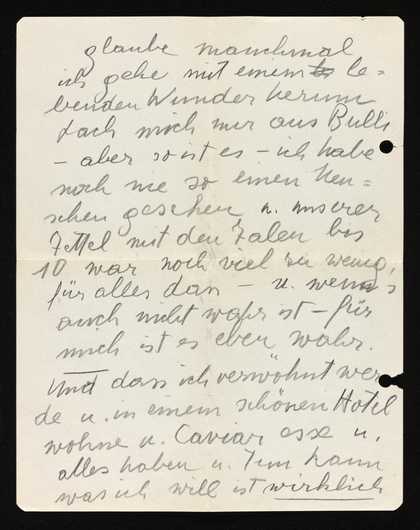 glaube manchmal
ich gehe mit einem le-
benden Wunder herum
Lach mich nur aus Bulli
– aber so ist es – ich habe
noch nie so einen Men=
schen gesehen u. unserer
Zettel mit den Zalen bis
10 war noch viel zu wenig,
für alles das – u. wenns
auch nicht wahr ist – für
mich ist es eben wahr.
Und dass ich verwöhnt wer
de u. in einem schönen Hotel
wohne u. Caviar esse u.
alles haben u. tun kann
was ich will ist wirklich